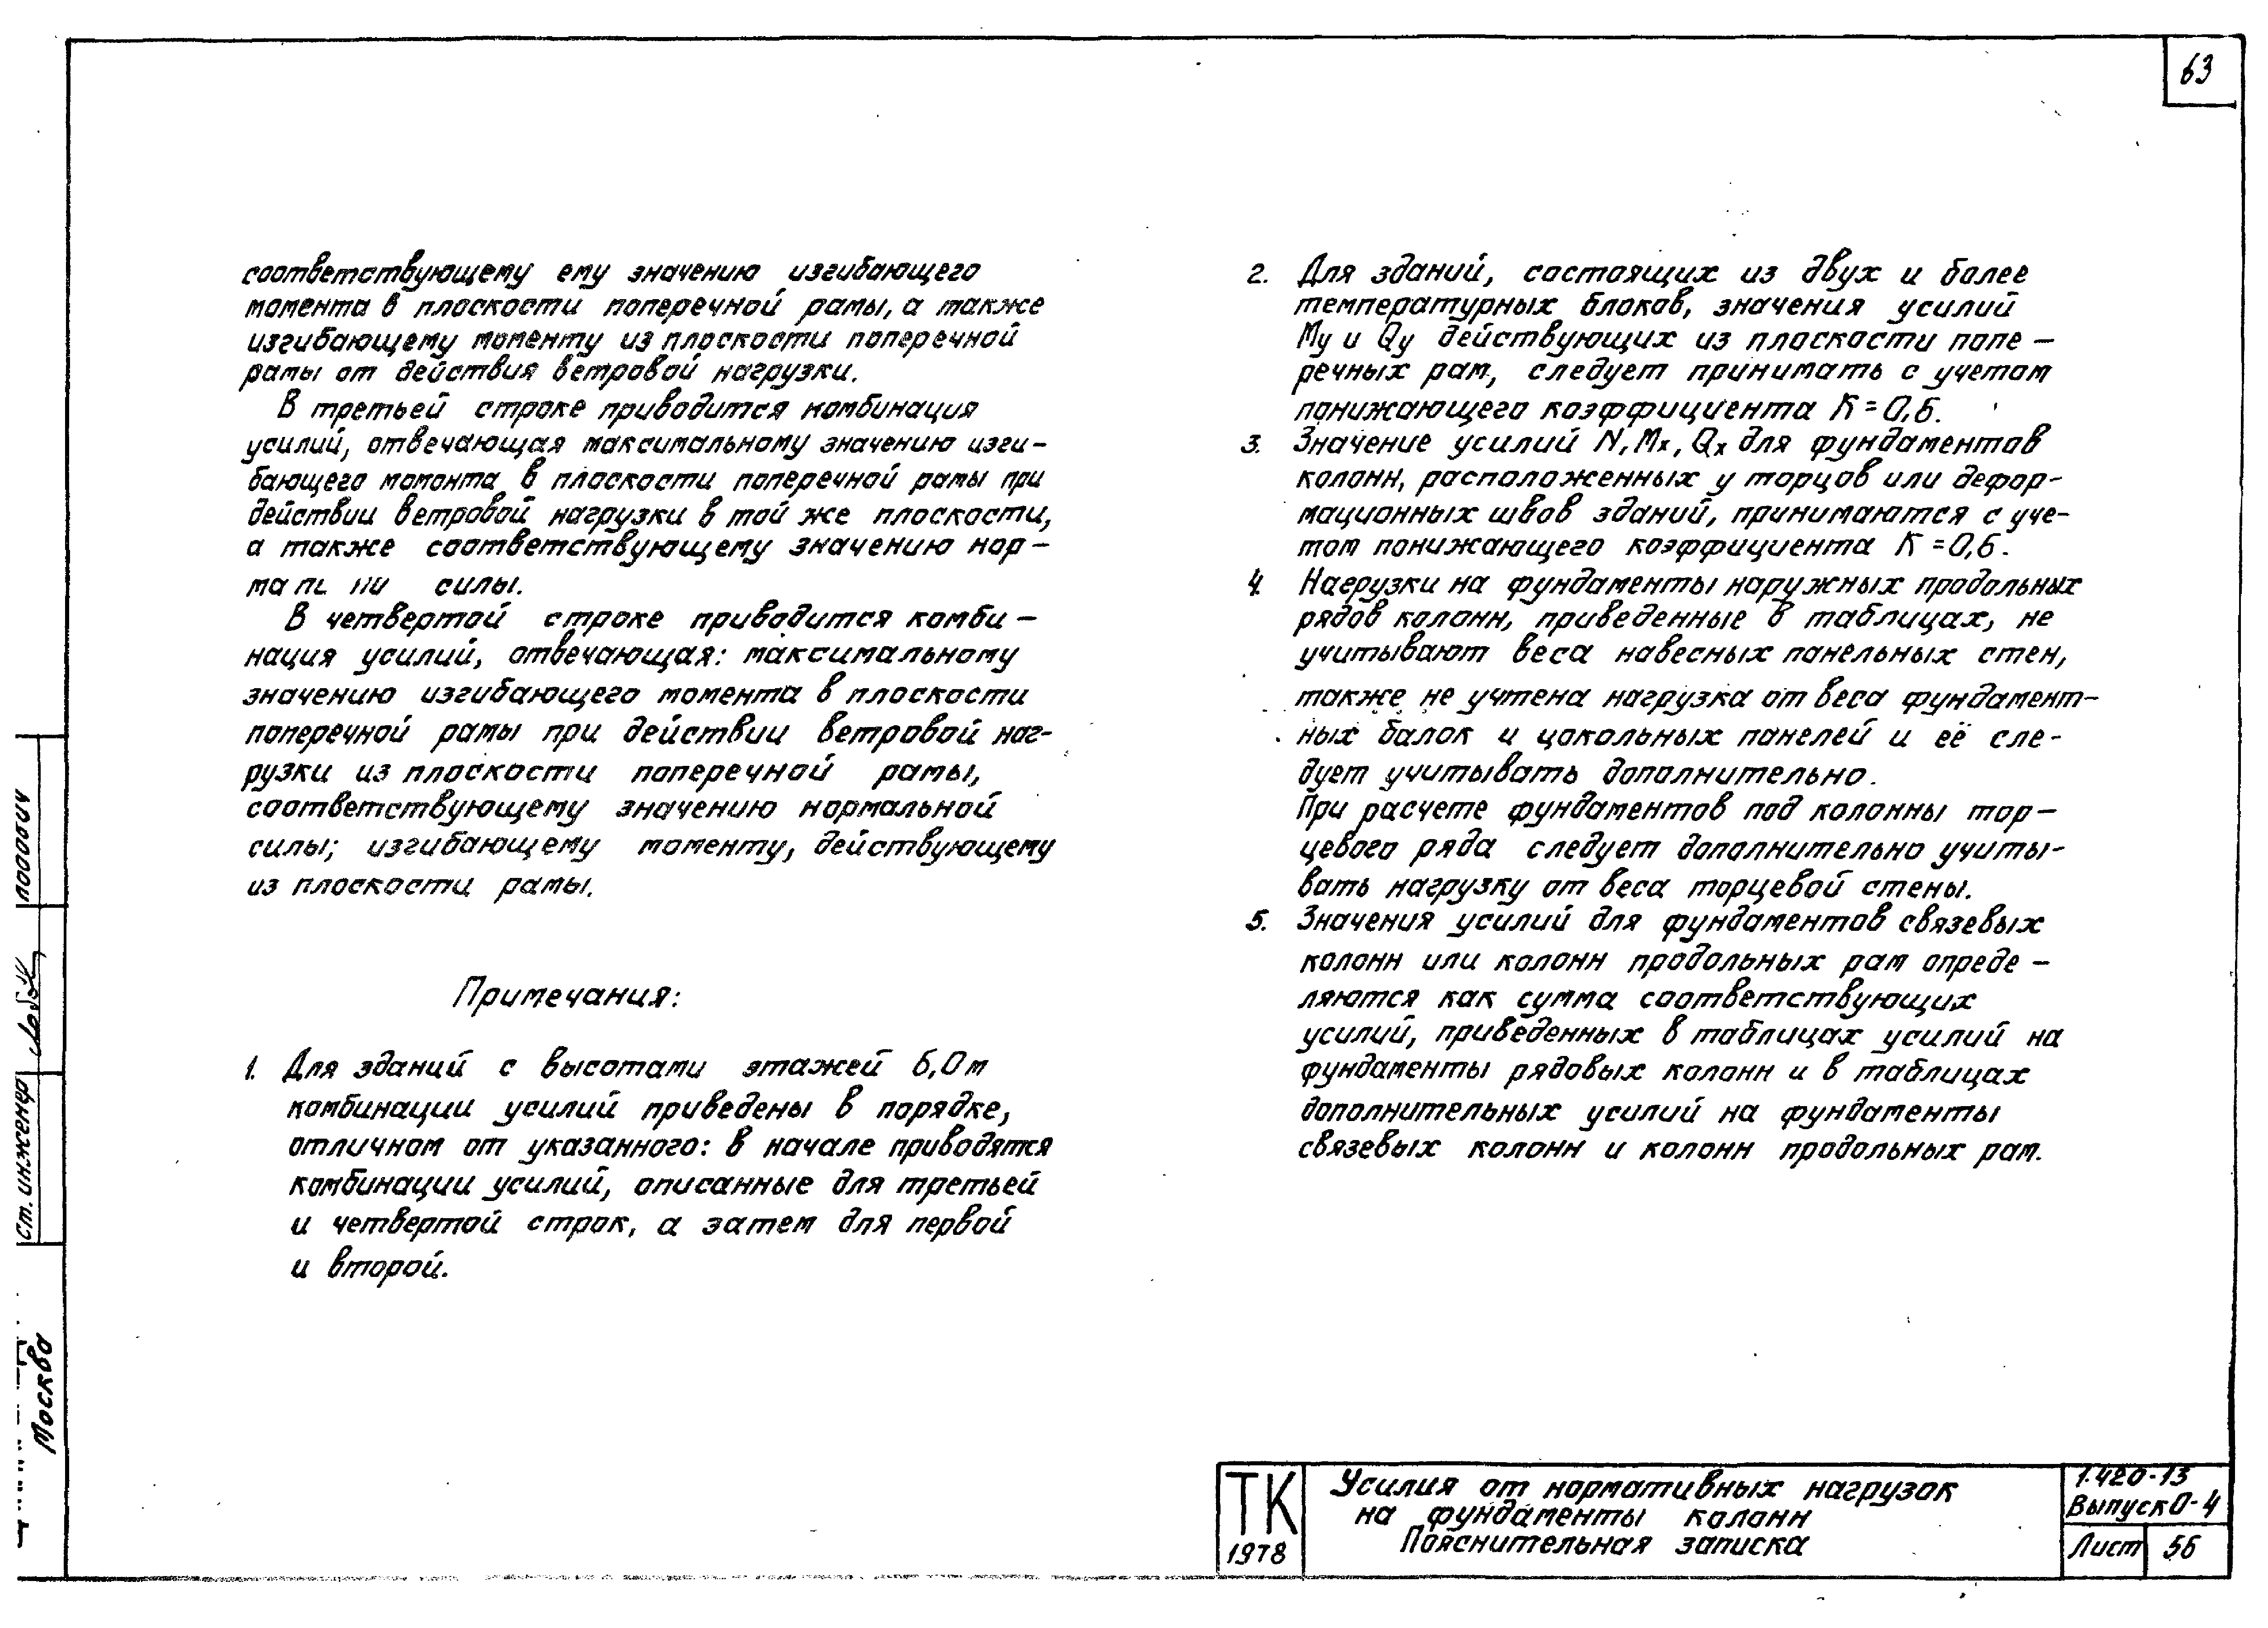 63
соответствующему ему значению изгибающего
момента в плоскости поперечной рамы, а также
изгибающему моменту из плоскости поперечной
рамы от действия ветровой нагрузки.
В третьей строке приводится комбинация
усилий, отвечающая максимальному значению изги-
бающего момента в плоскости поперечной рамы при
действии ветровой нагрузки в той же плоскости,
а также соответствующему значению нор-
силы.
В четвертой строке приводится комби-
нация усилий, отвечающая: максимальному
значению изгибающего момента в плоскости
поперечной рамы при действии ветровой наг-
рузки из плоскости поперечной рамы,
соответствующему значению нормальной
силы; изгибающему моменту, действующему
из плоскости рамы.
Примечания:
1. Для зданий с высотами этажей 6,0м
комбинации усилий приведены в порядке,
отличном от указанного: в начале приводятся
комбинации усилий, описанные для третьей
и четвертой строк, а затем для первой
и второй.
2. Для зданий, состоящих из двух и более
температурных блоков, значения усилий
Му и Qу действующих из плоскости попе-
речных рам, следует принимать с учетом
понижающего коэффициента К=0,6.
3. Значение усилий N, Мх, Qх для фундаментов
колонн, расположенных у торцов или дефор-
мационных швов зданий, принимаются с уче-
том понижающего коэффициента К=0,6.
4. Нагрузки на фундаменты наружных продольных
рядов колонн, приведенные в таблицах, не
учитывают веса навесных панельных стен,
также не учтена нагрузка от веса фундамент-
ных балок и цокольных панелей и её сле-
дует учитывать дополнительно.
При расчете фундаментов под колонны тор-
цевого ряда следует дополнительно учиты-
вать нагрузку от веса торцевой стены.
5. Значения усилий для фундаментов связевых
колонн или колонн продольных рам опреде-
ляются как сумма соответствующих
усилий, приведенных в таблицах усилий на
фундаменты рядовых колонн и в таблицах
дополнительных усилий на фундаменты
связевых колонн и колонн продольных рам.
Ст. инженер
Москва
ТК
1978
Усилия от нормативных нагрузок
на фундаменты колонн
Пояснительная записка
1.420-13
Выпуск 0-4
Лист 56